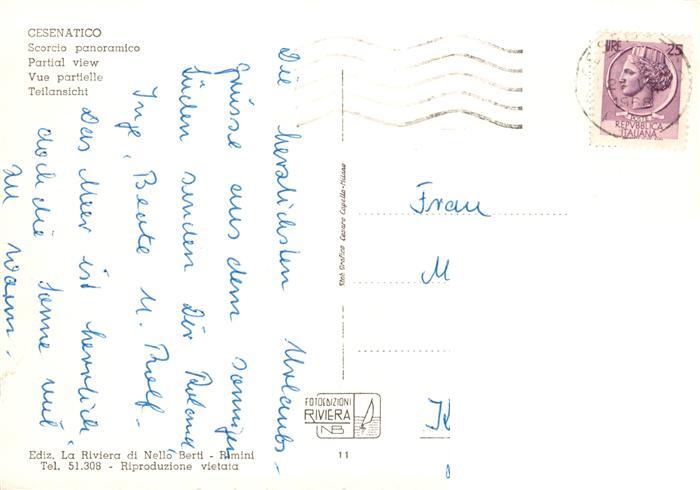 CESENATICO
Scorcio panoramico
Partial view
Vue partielle
Teilansicht
Die herzlichsten Urlaubs-
grüsse aus dem sonnigen
Süden senden Dir Roland
Inge, Beate u. Rolf.
Das Meer ist herrlich,
doch die Sonne viel
zu warm.
Ediz. La Riviera di Nello Berti - Rimini
Tel. 51.308 - Riproduzione vietata
Stab Grafico Cesare Capello-Milano
FOTOEDIZIONI
RIVIERA
NB
11
LIRE 25
POSTE
REPVBBLICA
ITALIANA
1968
Frau
M